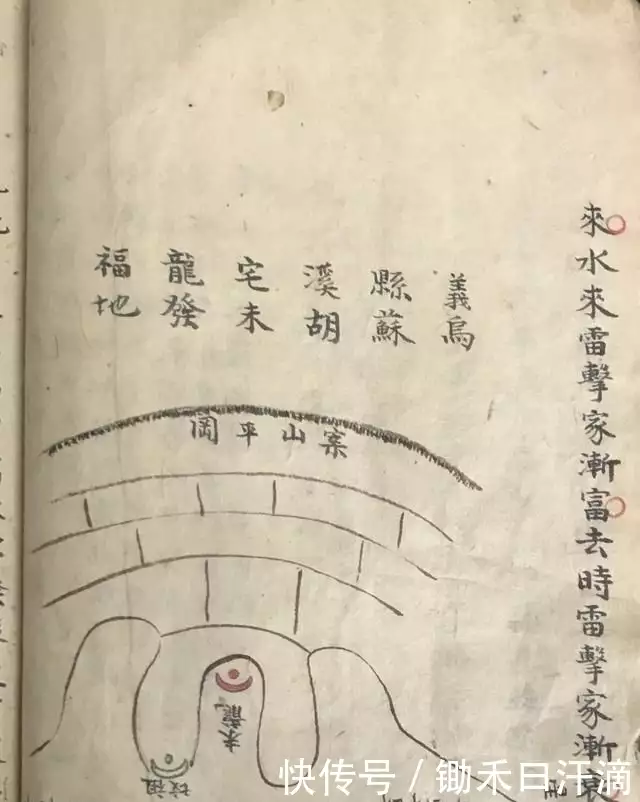 來水來雷擊家漸富去時雷擊家漸衰
義烏
縣蘇
溪胡
宅未
龍發
福地
案山平岡
来龍
祖坟
快传号／锄禾日汗滴